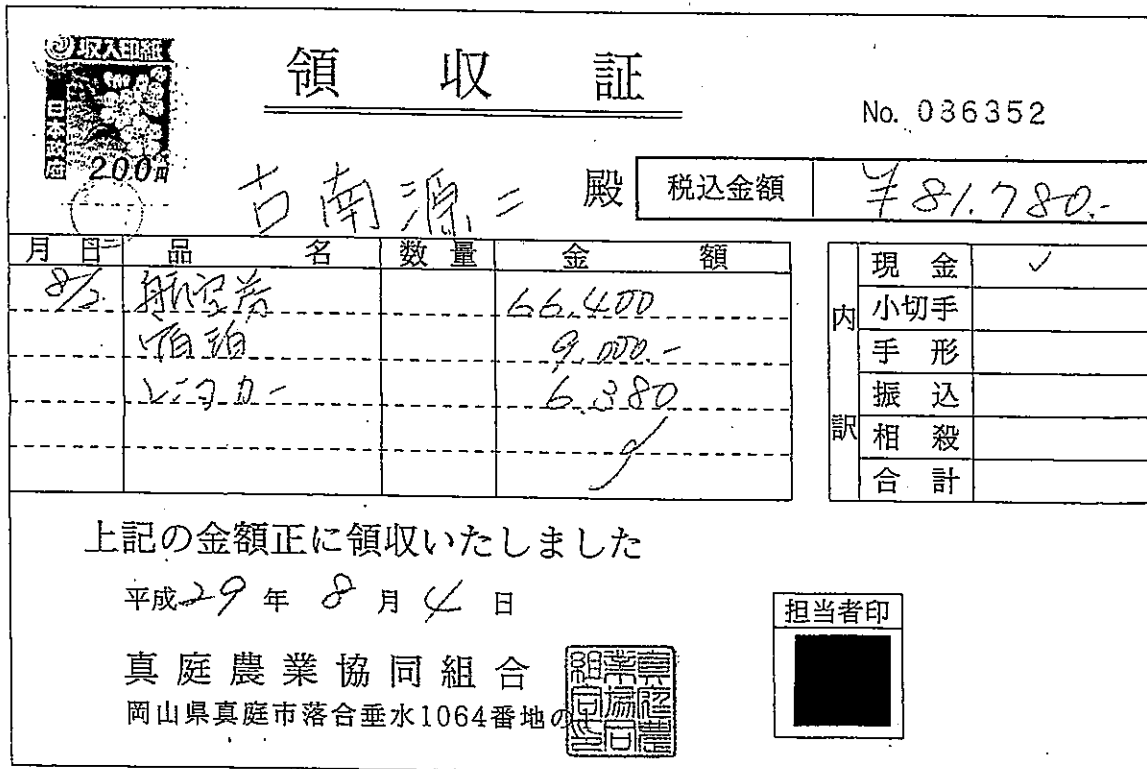 収入印紙
日本政府
200円
領収証
No. 036352
古南源二 殿
税込金額 ¥81,780.-
月日 品名 数量 金額
8/2 航空券 66,400
宿泊 9,000.-
レンタカー 6,380
内訳
現金 ✓
小切手
手形
振込
相殺
合計
上記の金額正に領収いたしました
平成29年8月4日
真庭農業協同組合
岡山県真庭市落合垂水1064番地の
真庭農業協同組合印
担当者印